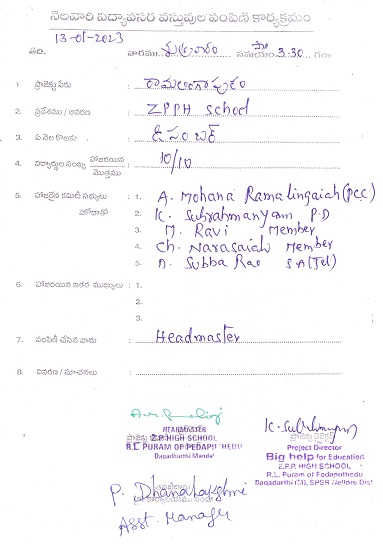 నెలవారి విద్యావసర వస్తువుల పంపిణి కార్యక్రమం
13-01-2023
తేది. వారము శుక్రవారం సమయం 3.30 గం॥
1. ప్రాజెక్టు పేరు : రామలింగాపురం
2. ప్రదేశము / ఆవరణ : ZPPH School
3. ఏ నెల కొఱకు : డిసెంబర్
4. విద్యార్థుల సంఖ్య హాజరయిన / మొత్తము : 10/10
5. హాజరైన కమిటీ సభ్యులు : 1. A. Mohana Ramalingaiah (PCC)
హోదాతో 2. K. Subrahmanyam P.D
3. M. Ravi Member
4. Ch. Narasaiah Member
5. D. Subba Rao S.A (Tel)
6. హాజరయిన ఇతర ముఖ్యులు : 1.
2.
3.
7. పంపిణి చేసిన వారు : Headmaster
8. వివరణ / సూచనలు :
HEADMASTER
Z.P. HIGH SCHOOL
R.L. PURAM OF PEDAPUTHEDU
Dagadarthi Mandal
K. Subrahmanyam
ప్రాజెక్టు డైరెక్టర్
Project Director
Big help for Education
Z.P.P. HIGH SCHOOL
R.L. Puram of Pedaputhedu
Dagadarthi (M), SPSR Nellore Dist
P. Dhanalakshmi
Asst. Manager